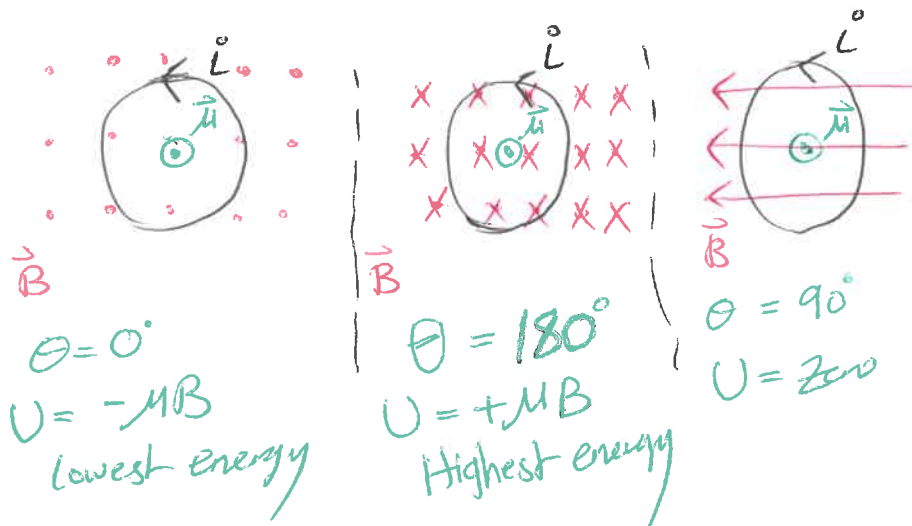 i
μ⃗
B⃗
θ = 0°
U = -μB
Lowest energy
i
μ⃗
B⃗
θ = 180°
U = +μB
Highest energy
i
μ⃗
B⃗
θ = 90°
U = Zero